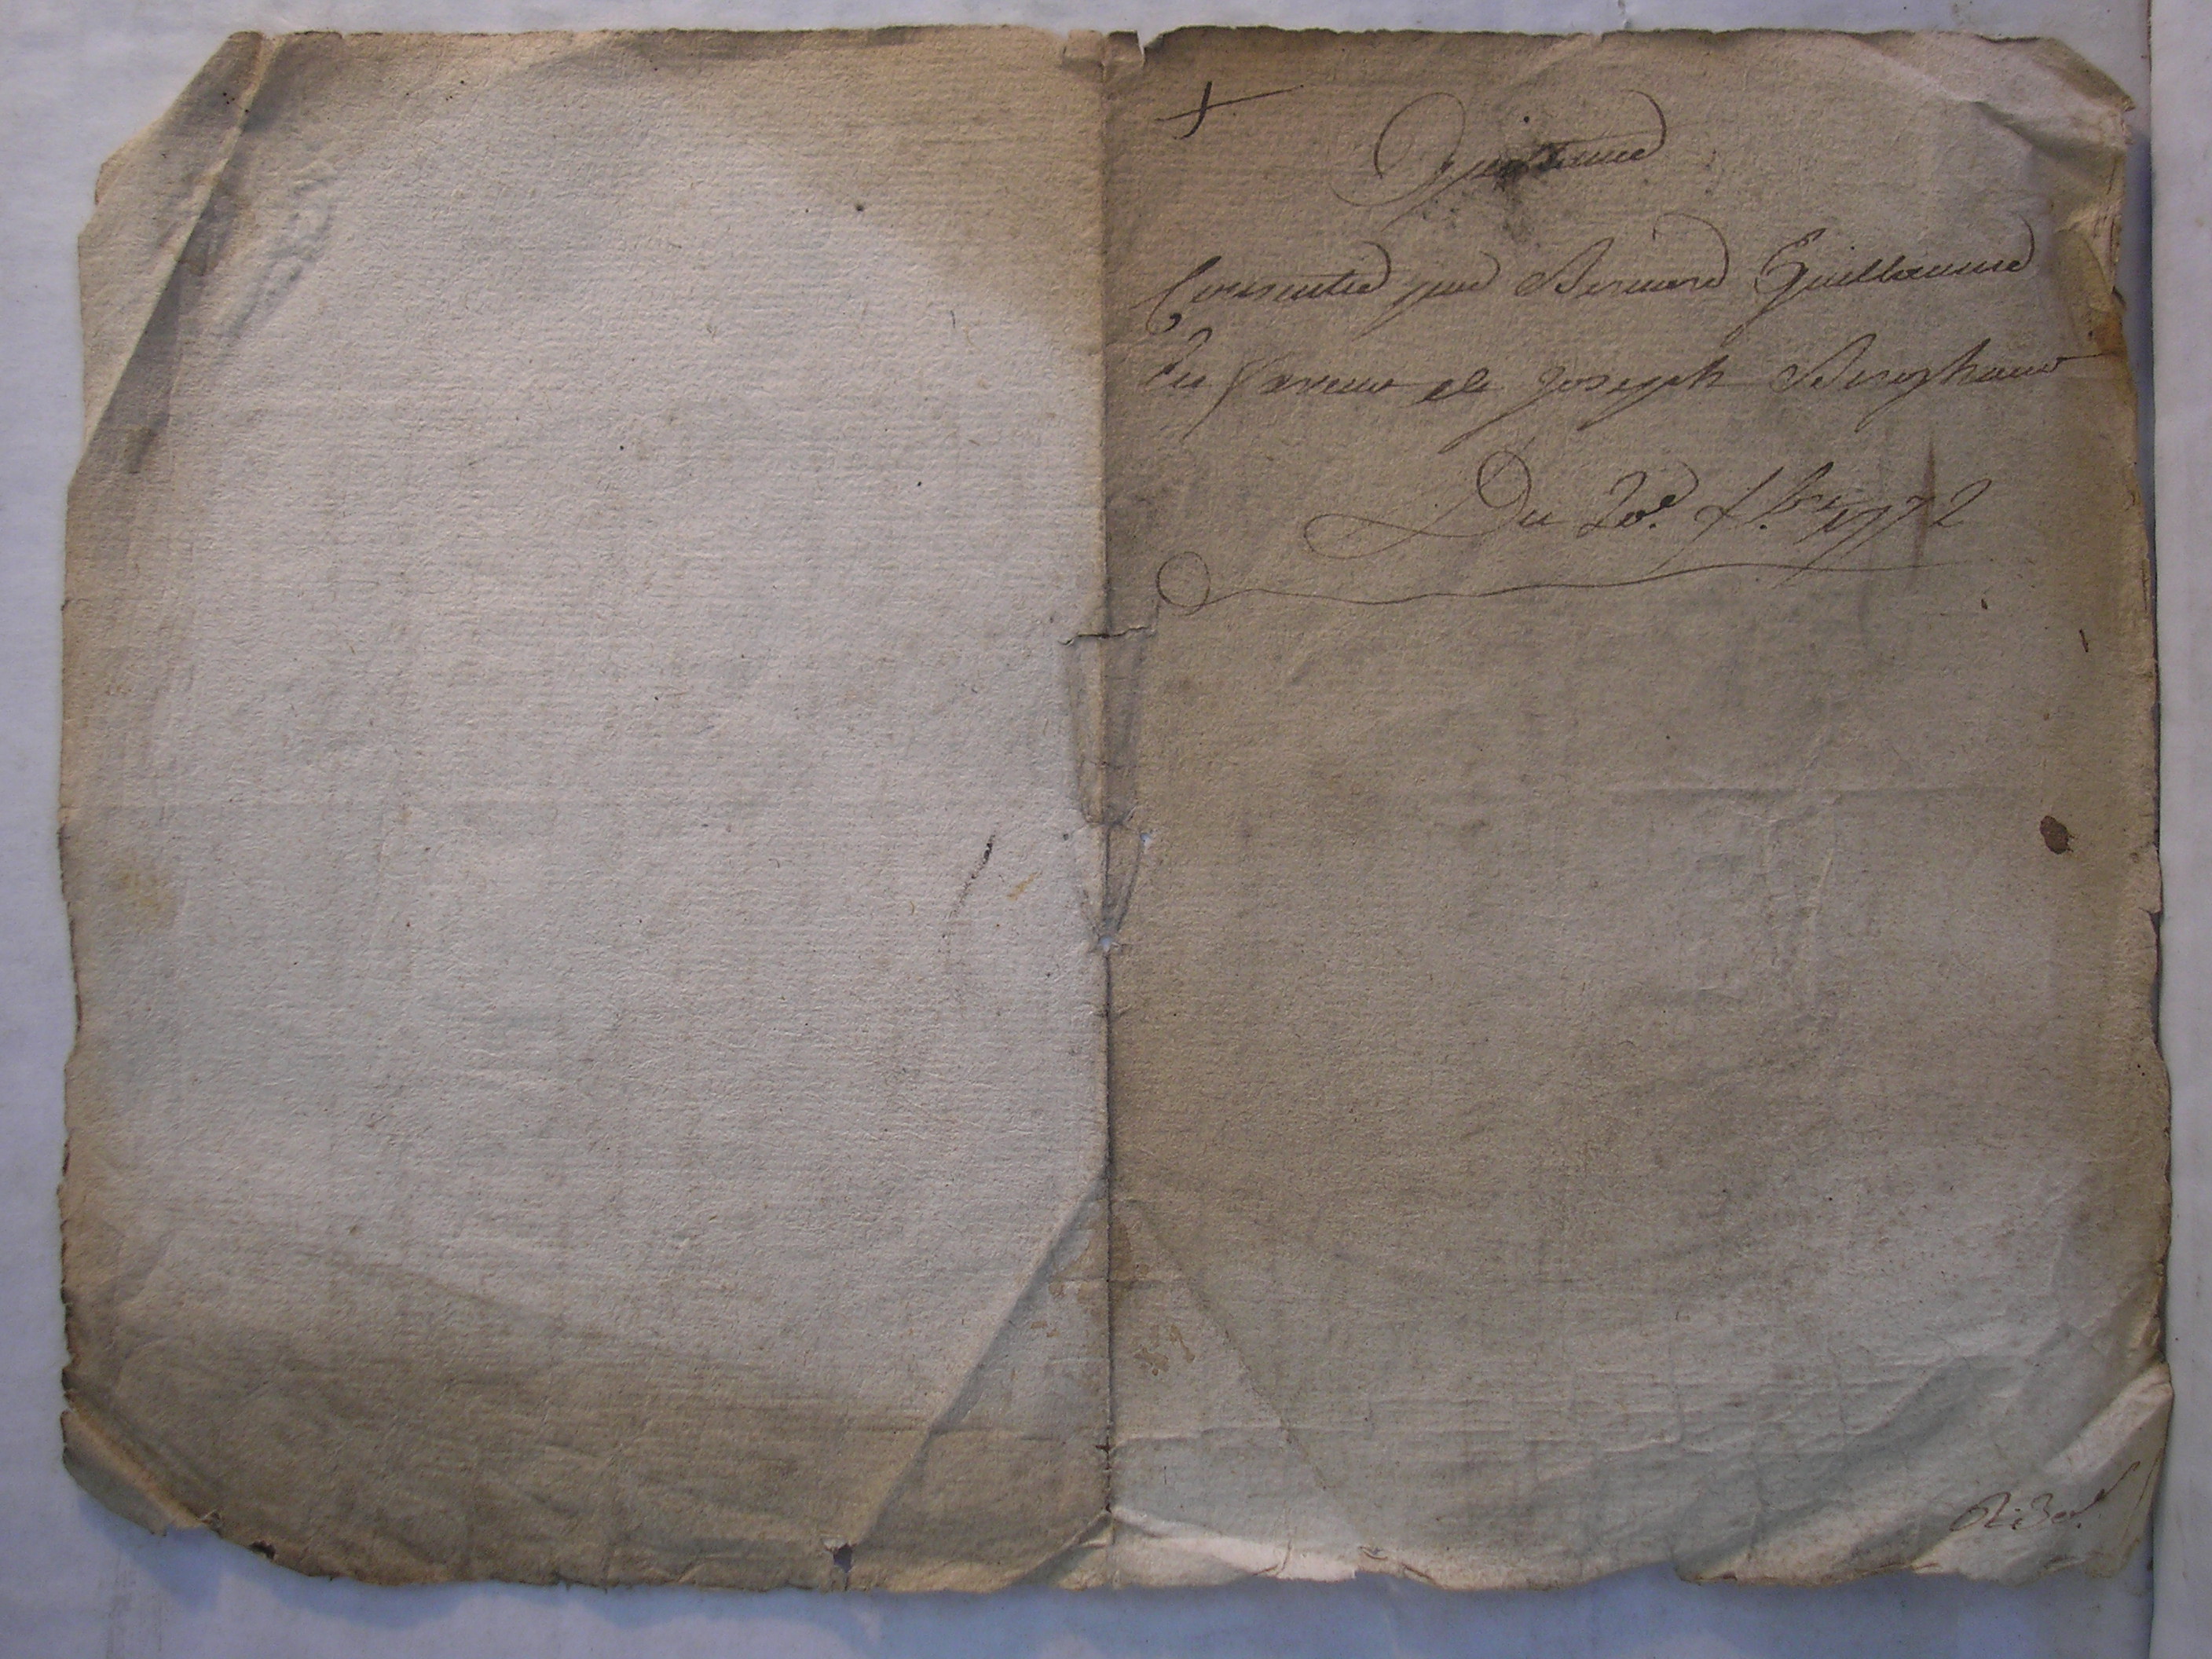 Quittance
Consentie par Bernard Guillaume
En faveur de Joseph
Du 20e. 1772